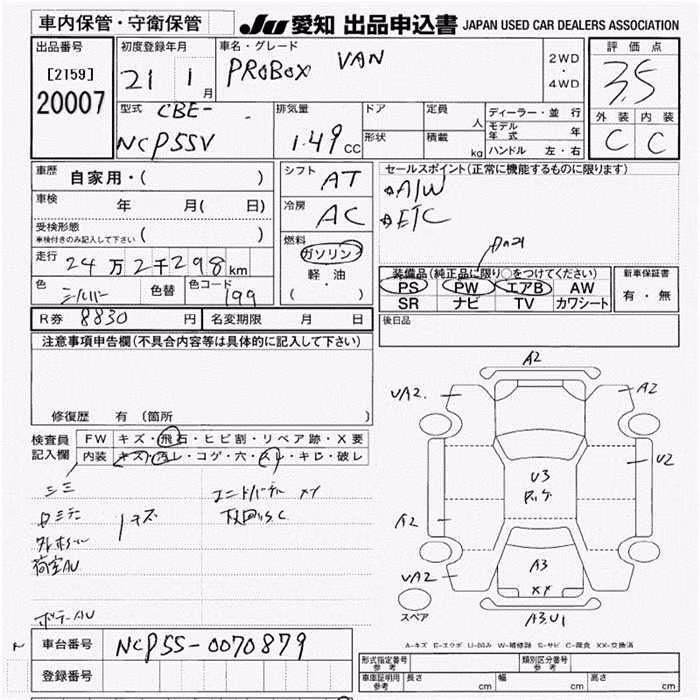 車内保管・守衛保管 JU 愛知 出品申込書 JAPAN USED CAR DEALERS ASSOCIATION
出品番号 初度登録年月 車名・グレード 評価点
[2159] 21 1月 PROBOX VAN 2WD・4WD 3.5
20007
型式 CBE- 排気量 ドア 定員 人 ディーラー・並行 外装 内装
NCP55V 1.49CC 形状 積載 kg モデル年式 年 C C
ハンドル 左・右
車歴 自家用・( ) シフト AT セールスポイント(正常に機能するものに限ります)
A/W
車検 年 月( 日) 冷房 AC ETC
受検形態 ( )
車検付きのみ記入して下さい
燃料
走行 24万2千298km ガソリン 装備品(純正品に限り○をつけてください) 新車保証書
軽油 PS PW エアB AW 有・無
色 シルバー 色替 色コード 199 ( ) SR ナビ TV カワシート
R券 8830円 名変期限 月 日 後日品
注意事項申告欄(不具合内容等は具体的に記入して下さい)
A2
UA2. A2
修復歴 有 (箇所 )
検査員 FW キズ・飛石・ヒビ割・リペア跡・X要
記入欄 内装 キズ・汚レ・コゲ・穴・スレ・キレ・破レ
U2
U3
シミ
キズ
A2
荷室AU
A3
UA2 XX
スペア
A3U1
A-キズ E-エクボ U-凹み W-補修跡 S-サビ C-腐食 XX-交換済
車台番号 NCP55-0070879
形式指定番号 参考 類別区分番号 参考
登録番号 車庫証明用 参考 長さ cm 幅 cm 高さ cm